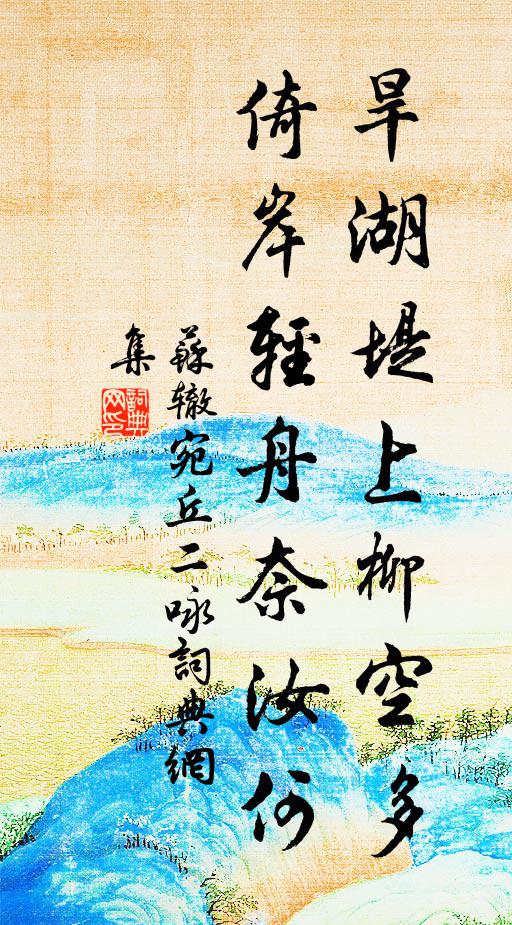 旱湖堤上柳空多
倚岸輕舟奈汝何
蘇辙宛丘二咏詞典網
集
詞典
网印